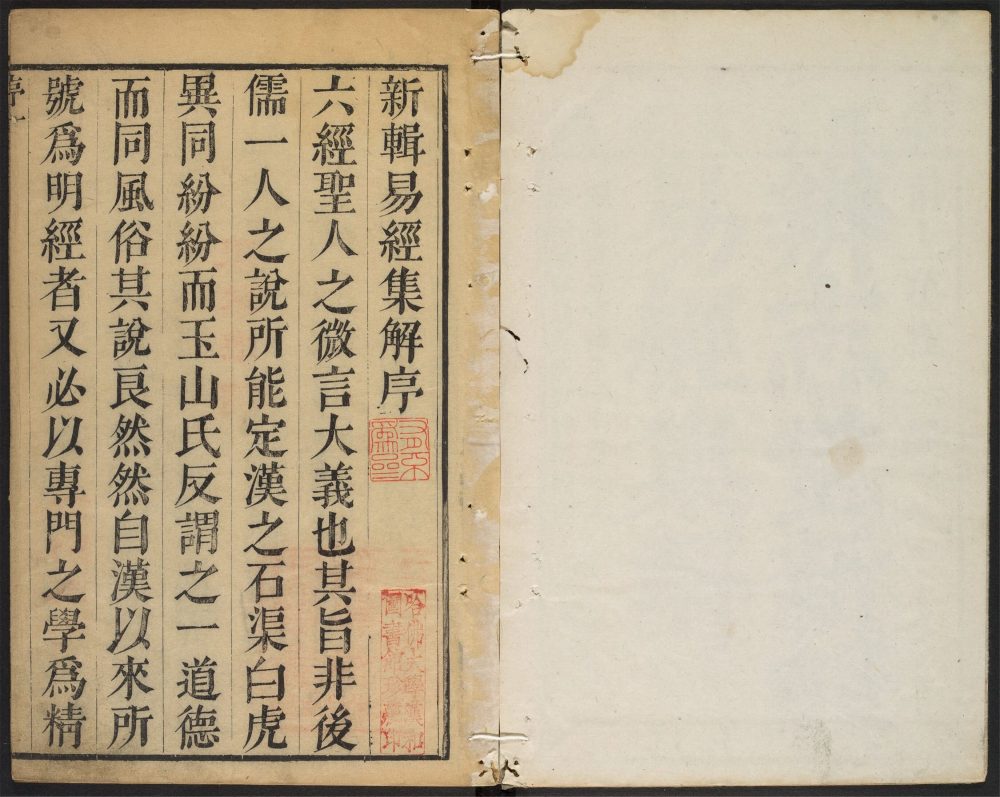 新輯易經集解序
六經聖人之微言大義也其旨非後
儒一人之說所能定漢之石渠白虎
異同紛紛而玉山氏反謂之一道德
而同風俗其說良然然自漢以來所
號爲明經者又必以專門之學爲精
哈佛大學漢和
圖書館珍藏印